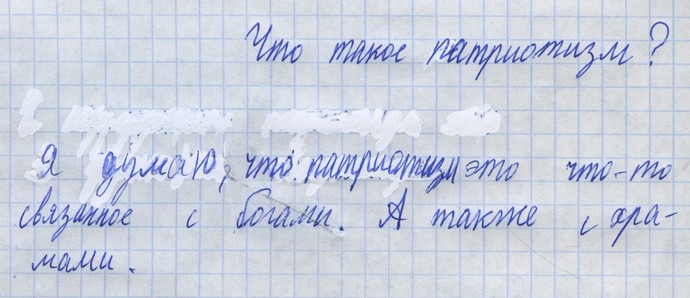 Что такое патриотизм?
Я думаю, что патриотизм это что-то
связанное с богами. А также с хра-
мами.